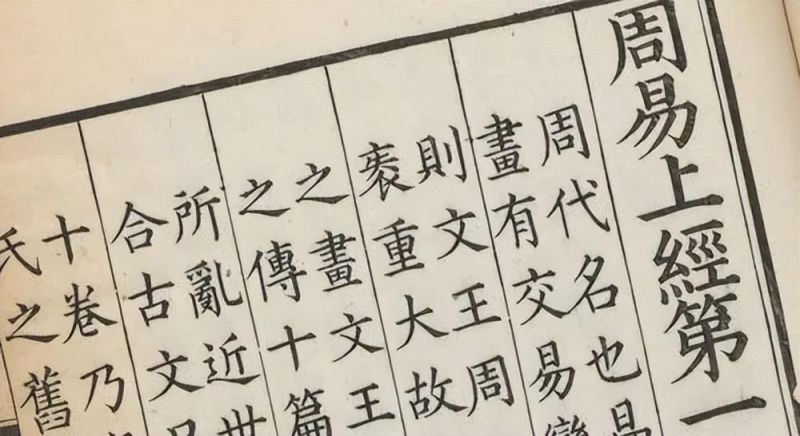 周易上經第一
周代名也易
畫有交易變
則文王周
袠重大故
之畫文王
之傳十篇
所亂近世
合古文
十卷乃
氏之舊